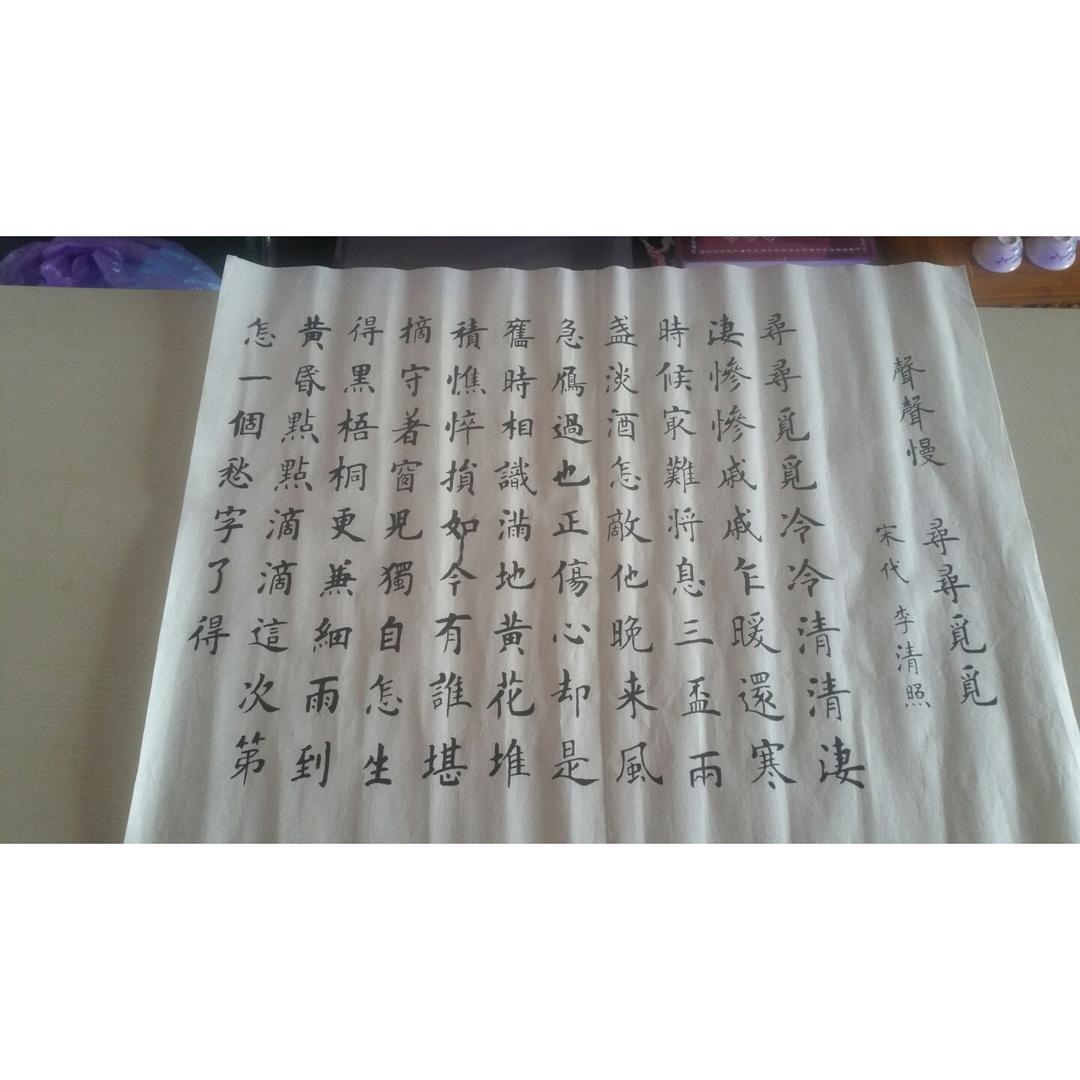 聲聲慢 尋尋覓覓
宋代 李清照
尋尋覓覓冷冷清清淒
淒慘慘戚戚乍暖還寒
時候㝡難将息三盃兩
盞淡酒怎敵他晚来風
急鴈過也正傷心却是
舊時相識滿地黃花堆
積憔悴損如今有誰堪
摘守著窗児獨自怎生
得黑梧桐更兼細雨到
黃昏點點滴滴這次第
怎一個愁字了得